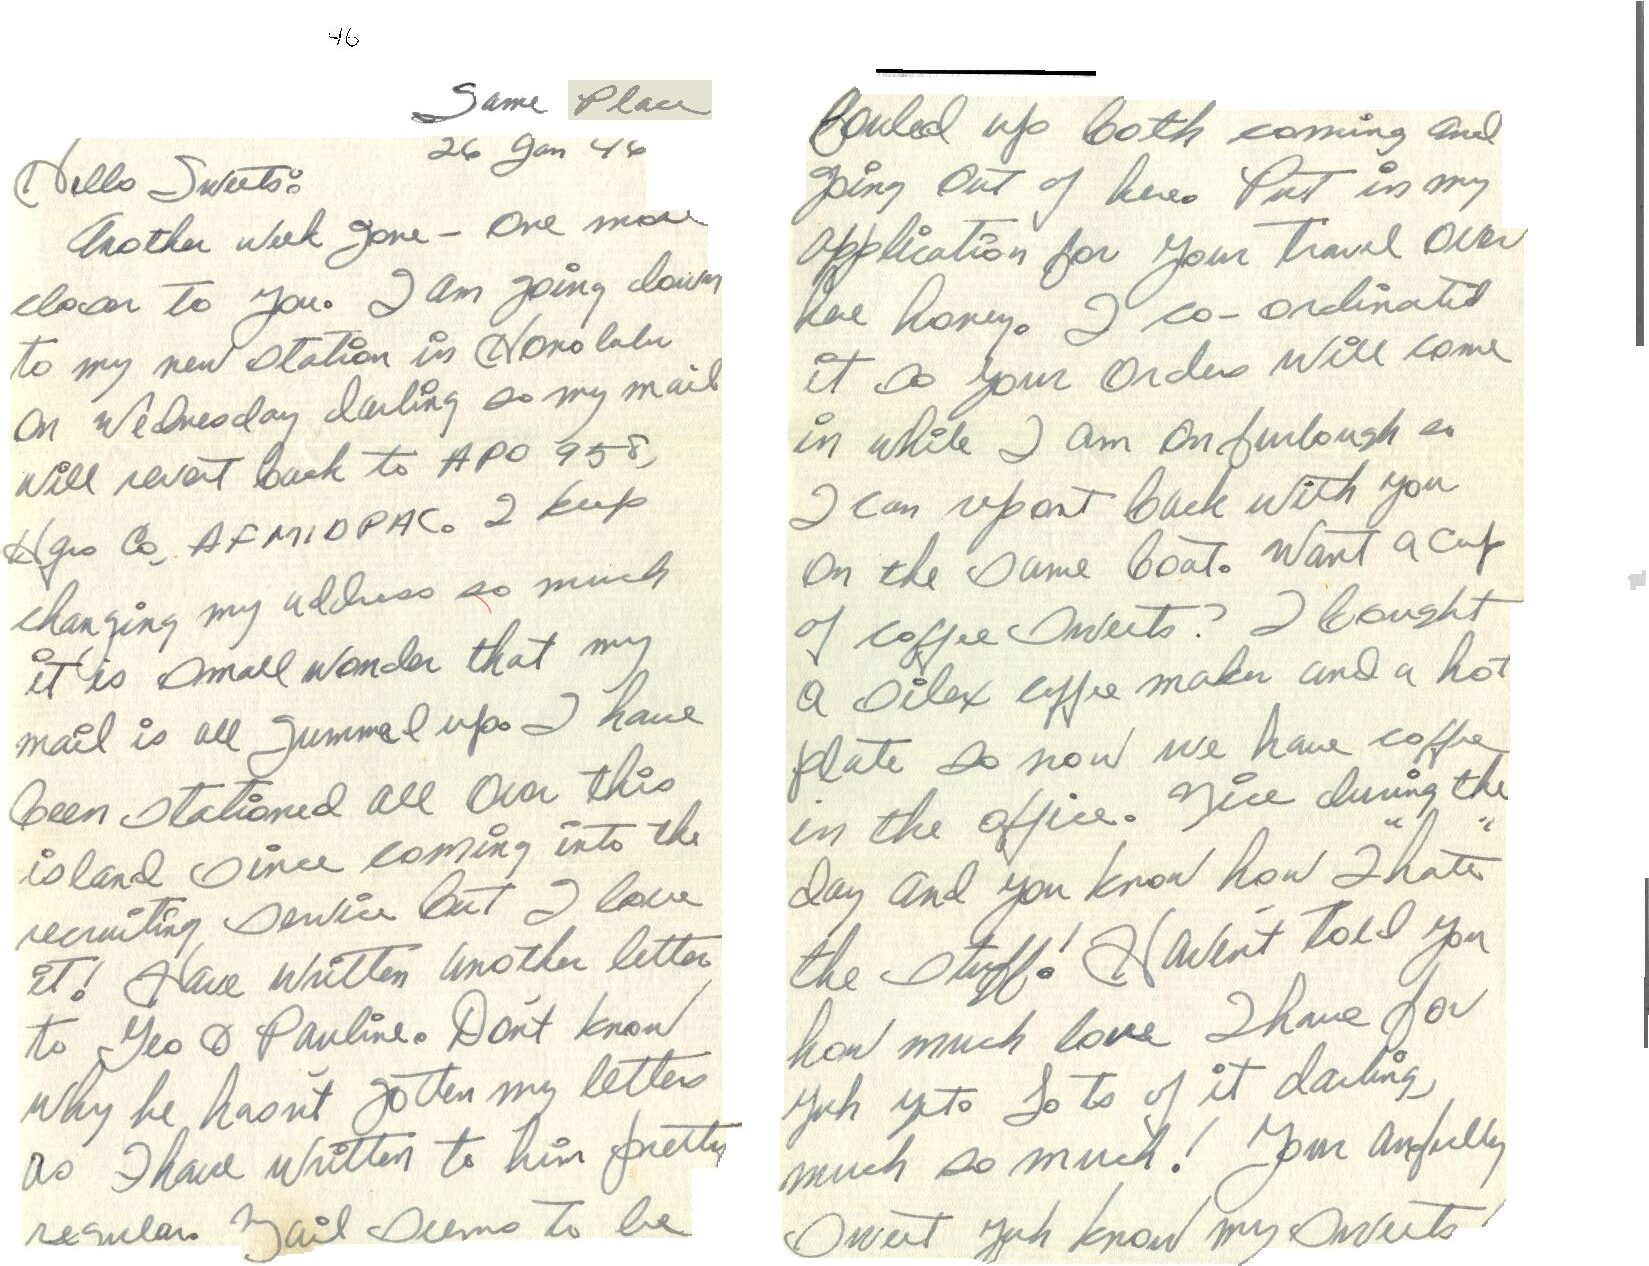 46
Same Place
26 Jan 46
Hello Sweets:
Another week gone - one more
closer to you. I am going down
to my new station in Honolulu
on Wednesday darling so my mail
will revert back to APO 958,
Hqrs Co, AFMIDPAC. I keep
changing my address so much
it is small wonder that my
mail is all gummed up. I have
been stationed all over this
island since coming into the
recruiting service but I love
it! Have written another letter
to Geo & Pauline. Don't know
why he hasn't gotten my letters
as I have written to him pretty
regular. Mail seems to be
fouled up both coming and
going out of here. Put in my
application for your travel over
here honey. I co-ordinated
it so your orders will come
in while I am on furlough so
I can report back with you
on the same boat. Want a cup
of coffee Sweets? I bought
a silex coffee maker and a hot
plate so now we have coffee
in the office. Nice during the
day and you know how I "hate"
the stuff! Haven't told you
how much love I have for
yuh yet. Lots of it darling,
much so much! Your awfully
sweet yuh know my Sweets